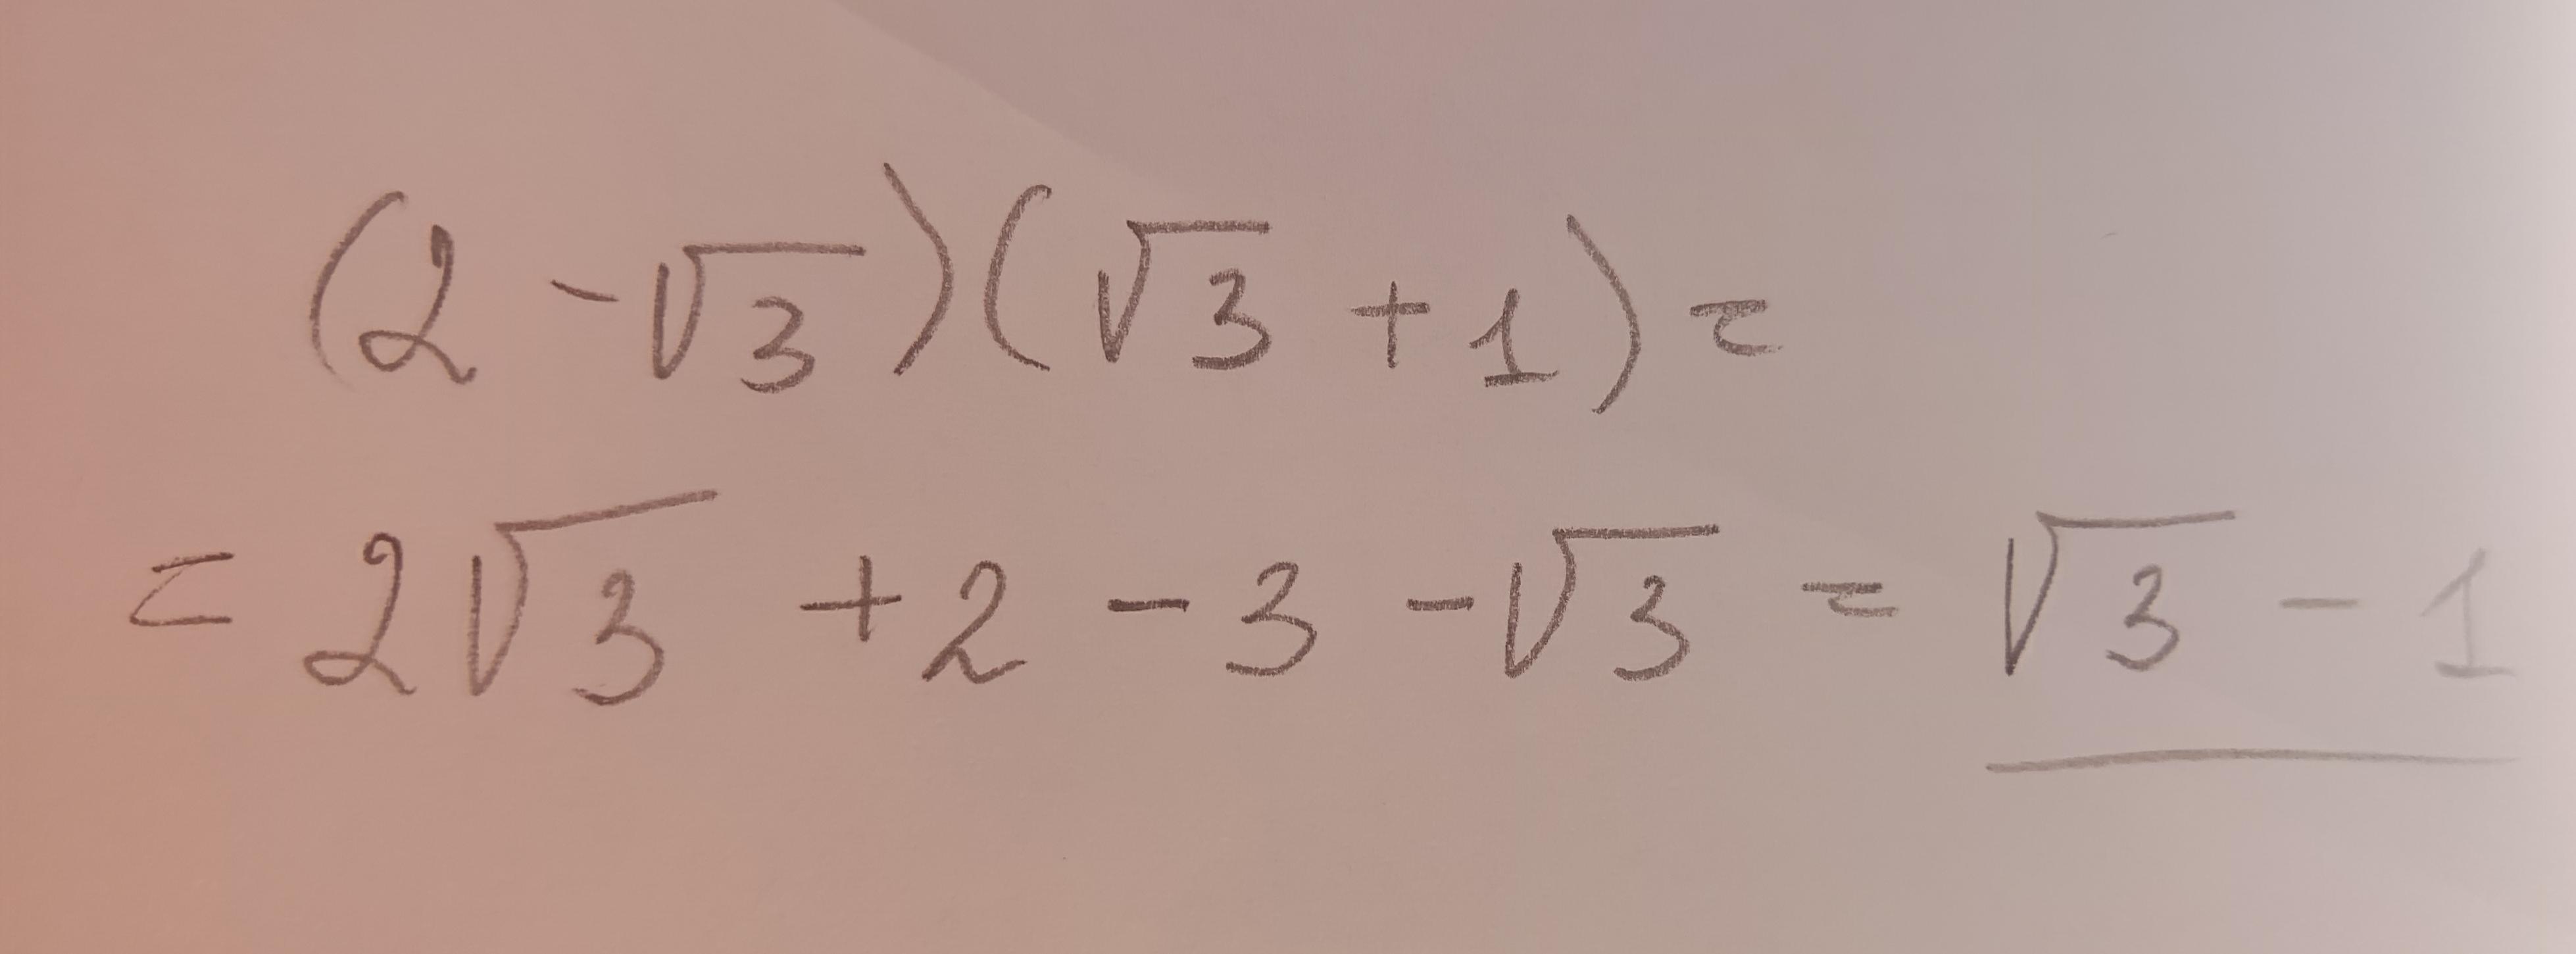 (2 - √3)(√3 + 1) =
= 2√3 + 2 - 3 - √3 = √3 - 1